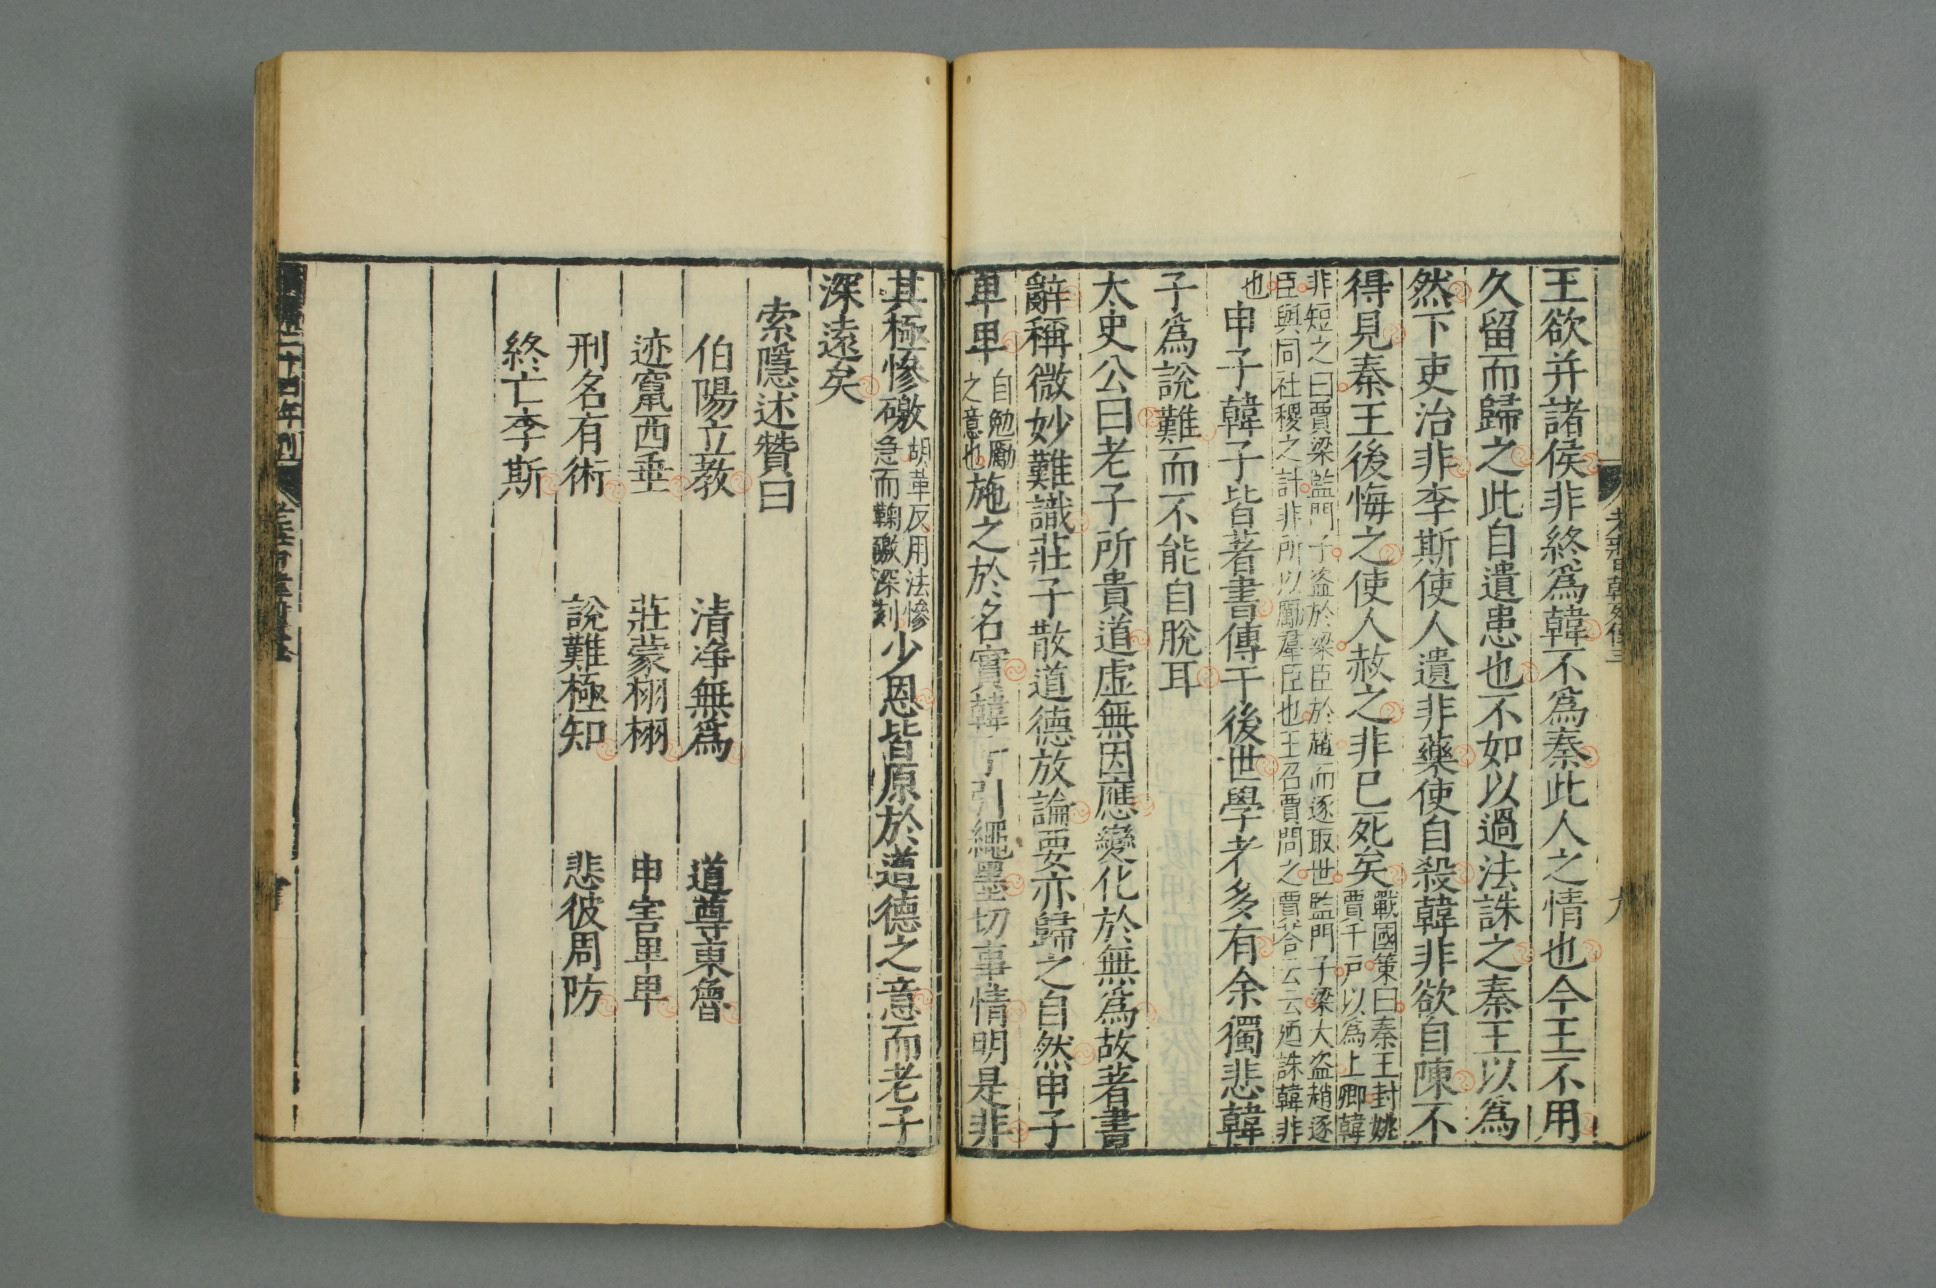 王欲并諸侯非終爲韓不爲秦此人之情也今王不用
久留而歸之此自遺患也不如以過法誅之秦王以爲
然下吏治非李斯使人遺非藥使自殺韓非欲自陳不
得見秦王後悔之使人赦之非已死矣
戰國策曰秦王封姚
賈千戸以爲上卿韓
非短之曰賈梁監門子盗於梁臣於趙而逐取世監門子梁大盗趙逐
臣與同社稷之計非所以厲羣臣也王召賈問之賈荅云云廼誅韓非
也
申子韓子皆著書傳于後世學者多有余獨悲韓
子爲說難而不能自脫耳
太史公曰老子所貴道虚無因應變化於無爲故著書
辭稱微妙難識莊子散道德放論要亦歸之自然申子
卑卑
自勉勵
之意也
施之於名實韓子引繩墨切事情明是非
其極慘礉
胡革反用法慘
急而鞠礉深刻
少恩皆原於道德之意而老子
深遠矣
索隱述贊曰
伯陽立教　清净無爲　道尊東魯
迹竄西垂　莊蒙栩栩　申害卑卑
刑名有術　說難極知　悲彼周防
終亡李斯